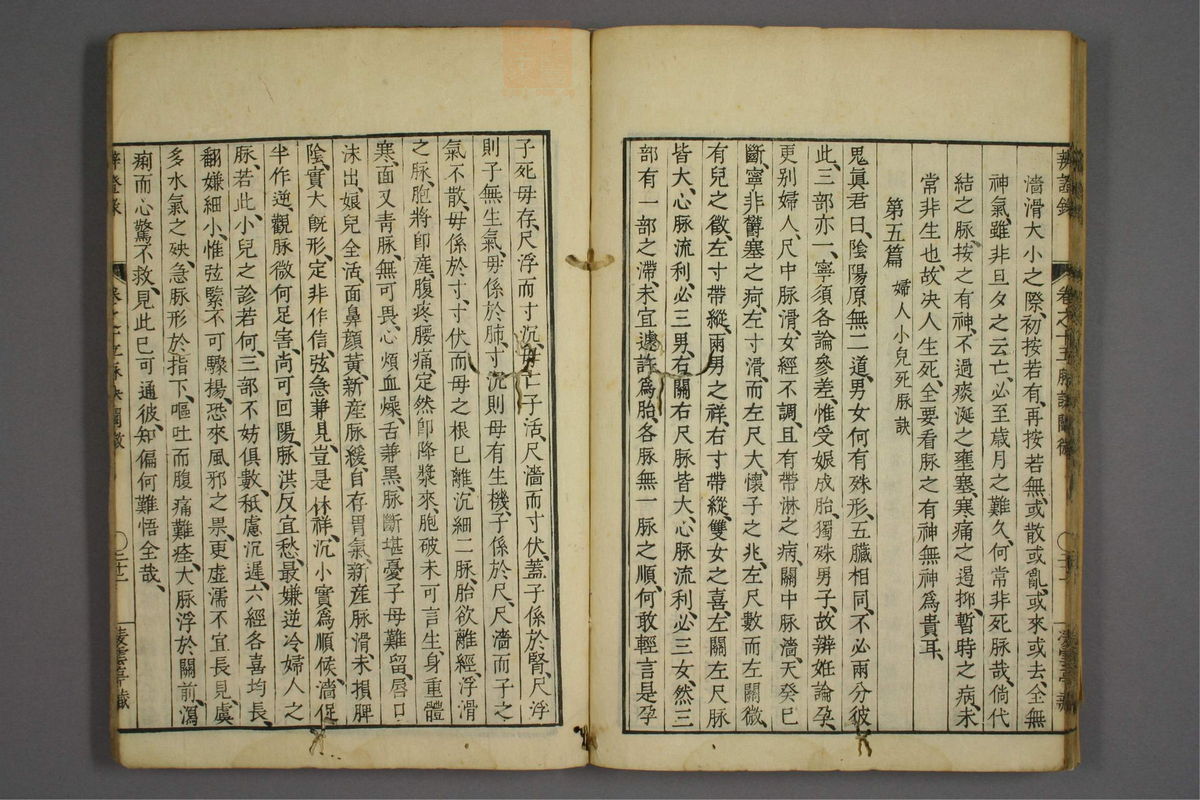 辨證錄
卷之十五脉訣闡微
澬滑大小之際、初按若有、再按若無、或散或亂、或來或去、全無
神氣、雖非旦夕之云亡、必至歲月之難久、何常非死脉哉、倘代
結之脉、按之有神、不過痰涎之壅塞、寒痛之遏抑、暫時之病、未
常非生也、故决人生死、全要看脉之有神無神爲貴耳、
第五篇 婦人小兒死脉訣
鬼眞君曰、陰陽原無二道、男女何有殊形、五臟相同、不必兩分彼
此、三部亦一、寧須各論參差、惟受娠成胎獨殊男子、故辨姙論孕
更别婦人、尺中脉滑、女經不調、且有帶淋之病、關中脉濇、天癸已
斷、寧非欝塞之痾、左寸滑而左尺大、懷子之兆、左尺數而左關微、
有兒之徵、左寸帶縱、兩男之祥、右寸帶縱、雙女之喜、左關左尺脉
皆大、心脉流利、必三男、右關右尺脉皆大、心脉流利、必三女、然三
部有一部之滯、未宜遽許爲胎、各脉無一脉之順、何敢輕言是孕
子死毋存、尺浮而寸沉、毋亡子活、尺濇而寸伏、蓋子係於腎、尺浮
則子無生氣、毋係於肺、寸沉則母有生機、子係於尺、尺濇而子之
氣不散、毋係於寸、寸伏而母之根已離、沉細二脉、胎欲離經、浮滑
之脉、胞將卽産、腹疼腰痛、定然卽降、漿來胞破、未可言生、身重體
寒、面又靑、脉無可畏、心煩血燥、舌兼黑、脉斷堪憂、子母難留、唇口
沫出、娘兒全活、面鼻顔黃、新産脉緩、自存胃氣、新産脉滑、未損脾
陰、實大旣形、定非作信、弦急兼見、豈是休祥、沉小實爲順候、濇促
半作逆觀、脉微何足害、尚可回陽、脉洪反宜愁、最嫌逆冷、婦人之
脉、若此、小兒之診若何、三部不妨俱數、秖慮沉遲、六經各喜均長、
翻嫌細小、惟弦緊不可驟揚、恐來風邪之祟、更虛濡不宜長見、虞
多水氣之殃、急脉形於指下、嘔吐而腹痛難痊、大脉浮於關前、瀉
痢而心驚不救、見此已可通彼、知偏何難悟全哉、